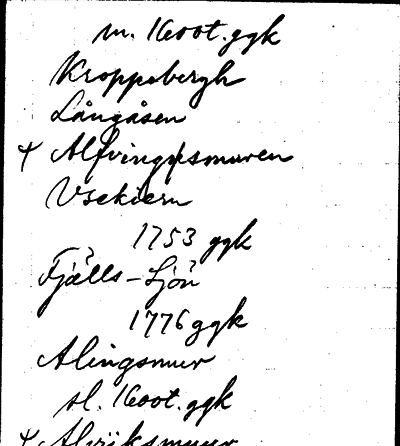 m. 1600t. ggk
Kroppsbergh
Långåsen
+ Alfvingxsmuren
Vsekiern
1753 ggk
Fjälls-Sjön
1776 ggk
Alingsmur
sl. 1600t. ggk
+ Alviksmuur